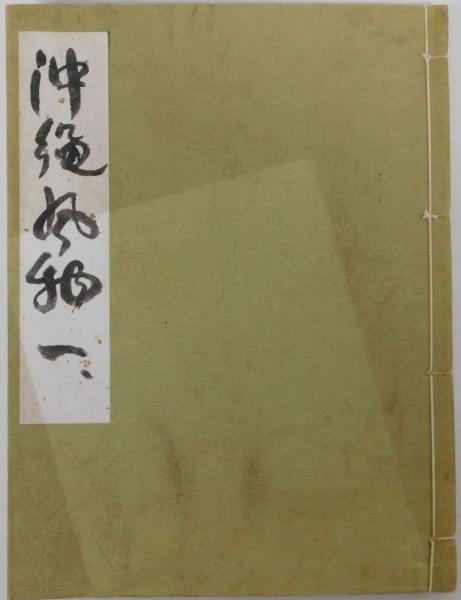 沖縄風物 一、